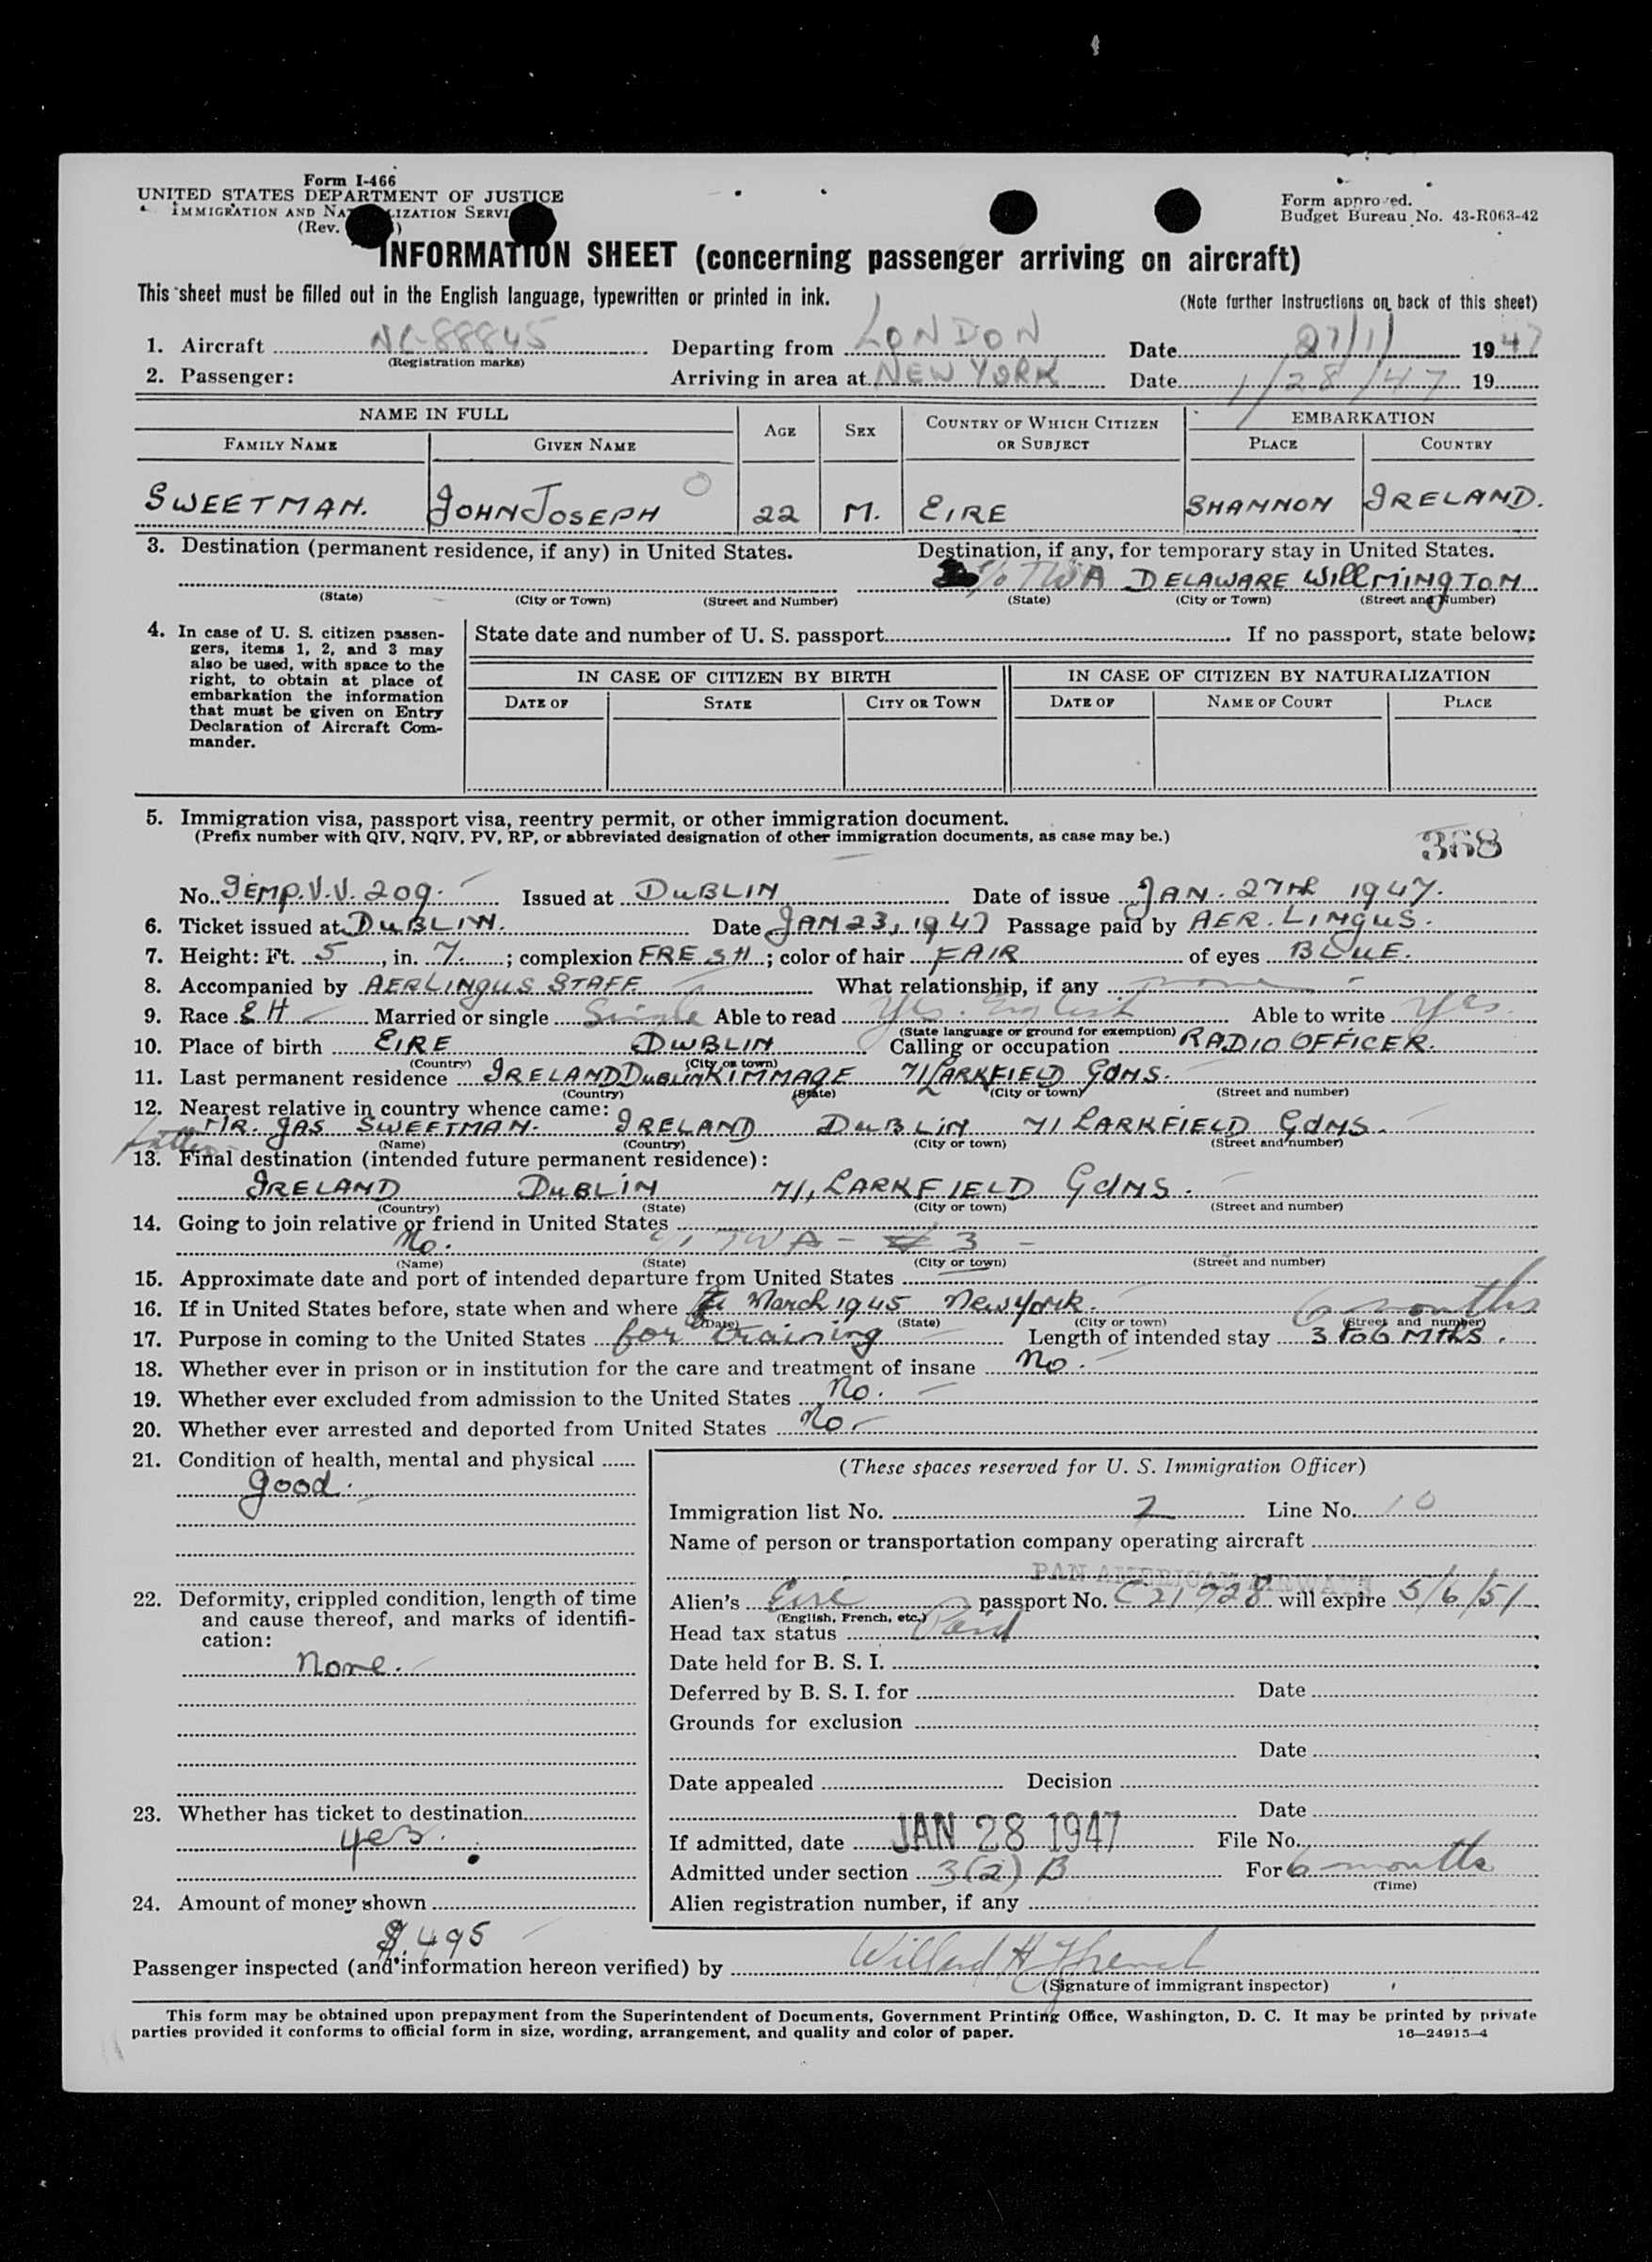 Form I-466
UNITED STATES DEPARTMENT OF JUSTICE
IMMIGRATION AND NA LIZATION SERVI
(Rev. )
Form approved.
Budget Bureau No. 43-R063-42
INFORMATION SHEET (concerning passenger arriving on aircraft)
This sheet must be filled out in the English language, typewritten or printed in ink.
(Note further instructions on back of this sheet)
1. Aircraft NC-88845 Departing from LONDON Date 27/1/ 1947
(Registration marks)
2. Passenger: Arriving in area at NEW YORK Date 1/28/47 19
NAME IN FULL AGE SEX COUNTRY OF WHICH CITIZEN OR SUBJECT EMBARKATION
FAMILY NAME GIVEN NAME PLACE COUNTRY
SWEETMAN. JOHN JOSEPH 22 M. EIRE SHANNON IRELAND.
3. Destination (permanent residence, if any) in United States. Destination, if any, for temporary stay in United States.
c/o TWA DELAWARE WILLMINGTON
(State) (City or Town) (Street and Number) (State) (City or Town) (Street and Number)
4. In case of U. S. citizen passengers, items 1, 2, and 3 may also be used, with space to the right, to obtain at place of embarkation the information that must be given on Entry Declaration of Aircraft Commander.
State date and number of U. S. passport If no passport, state below:
IN CASE OF CITIZEN BY BIRTH IN CASE OF CITIZEN BY NATURALIZATION
DATE OF STATE CITY OR TOWN DATE OF NAME OF COURT PLACE
5. Immigration visa, passport visa, reentry permit, or other immigration document.
(Prefix number with QIV, NQIV, PV, RP, or abbreviated designation of other immigration documents, as case may be.)
368
No. TEMP. V.V. 209. Issued at DUBLIN Date of issue JAN. 27TH 1947.
6. Ticket issued at DUBLIN. Date JAN 23, 1947 Passage paid by AER. LINGUS.
7. Height: Ft. 5, in. 7. ; complexion FRESH ; color of hair FAIR of eyes BLUE.
8. Accompanied by AERLINGUS STAFF What relationship, if any none
9. Race EH Married or single Single Able to read Yes. English Able to write Yes.
(State language or ground for exemption)
10. Place of birth EIRE DUBLIN Calling or occupation RADIO OFFICER.
(Country) (City or town)
11. Last permanent residence IRELAND DUBLIN KIMMAGE 71 LARKFIELD GDNS.
(Country) (State) (City or town) (Street and number)
12. Nearest relative in country whence came:
father MR. JAS SWEETMAN. IRELAND DUBLIN 71 LARKFIELD GDNS.
(Name) (Country) (City or town) (Street and number)
13. Final destination (intended future permanent residence):
IRELAND DUBLIN 71, LARKFIELD GDNS.
(Country) (State) (City or town) (Street and number)
14. Going to join relative or friend in United States
No. TWA - # 3 -
(Name) (State) (City or town) (Street and number)
15. Approximate date and port of intended departure from United States
6 months
16. If in United States before, state when and where March 1945 New York.
(Date) (State) (City or town) (Street and number)
17. Purpose in coming to the United States for training Length of intended stay 3 to 6 MTHS.
18. Whether ever in prison or in institution for the care and treatment of insane No.
19. Whether ever excluded from admission to the United States No.
20. Whether ever arrested and deported from United States No
21. Condition of health, mental and physical
good.
22. Deformity, crippled condition, length of time and cause thereof, and marks of identification:
None.
23. Whether has ticket to destination
yes.
24. Amount of money shown
$.495
(These spaces reserved for U. S. Immigration Officer)
Immigration list No. 2 Line No. 10
Name of person or transportation company operating aircraft
PAN AMERICAN AIRWAYS
Alien's Eire passport No. C21928 will expire 5/6/51
(English, French, etc.)
Head tax status Paid
Date held for B. S. I.
Deferred by B. S. I. for Date
Grounds for exclusion
Date
Date appealed Decision
Date
If admitted, date JAN 28 1947 File No.
Admitted under section 3(2) B For 6 months
(Time)
Alien registration number, if any
Passenger inspected (and information hereon verified) by Willard H French
(Signature of immigrant inspector)
This form may be obtained upon prepayment from the Superintendent of Documents, Government Printing Office, Washington, D. C. It may be printed by private
parties provided it conforms to official form in size, wording, arrangement, and quality and color of paper.
16—24915-4